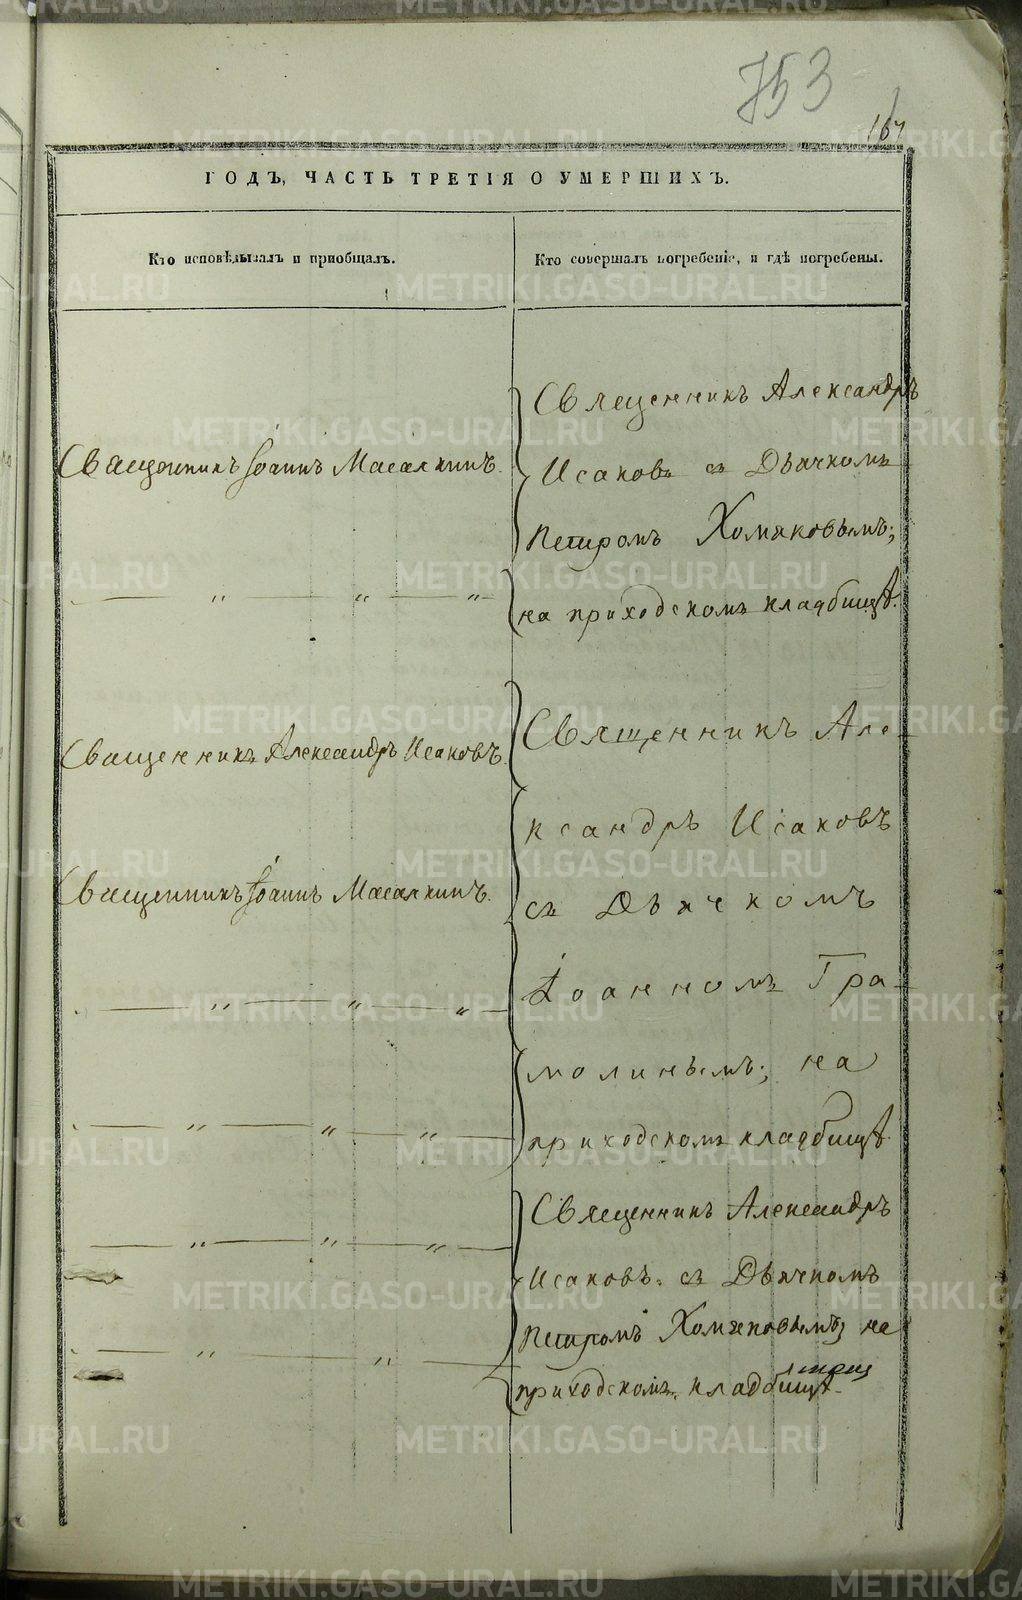 753
167
ГОДЪ, ЧАСТЬ ТРЕТІЯ О УМЕРШИХЪ.
Кто исповѣдывалъ и пріобщалъ.
Кто совершалъ погребеніе, и гдѣ погребены.
Священникъ Іоаннъ Масалкинъ.
— „ — „ — „ —
Священникъ Александръ Исаковъ.
Священникъ Іоаннъ Масалкинъ.
— „ — „ — „ —
— „ — „ — „ —
— „ — „ — „ —
— „ — „ —
Священникъ Александръ
Исаковъ съ Дьячкомъ
Петромъ Хомяковымъ;
на приходскомъ кладбищѣ.
Священникъ Але-
ксандръ Исаковъ
съ Дьячкомъ
Іоанномъ Гра-
молинымъ; на
приходскомъ кладбищѣ.
Священникъ Александръ
Исаковъ съ Дьячкомъ
Петромъ Хомяковымъ; на
приходскомъ кладбищѣ.
METRIKI.GASO-URAL.RU